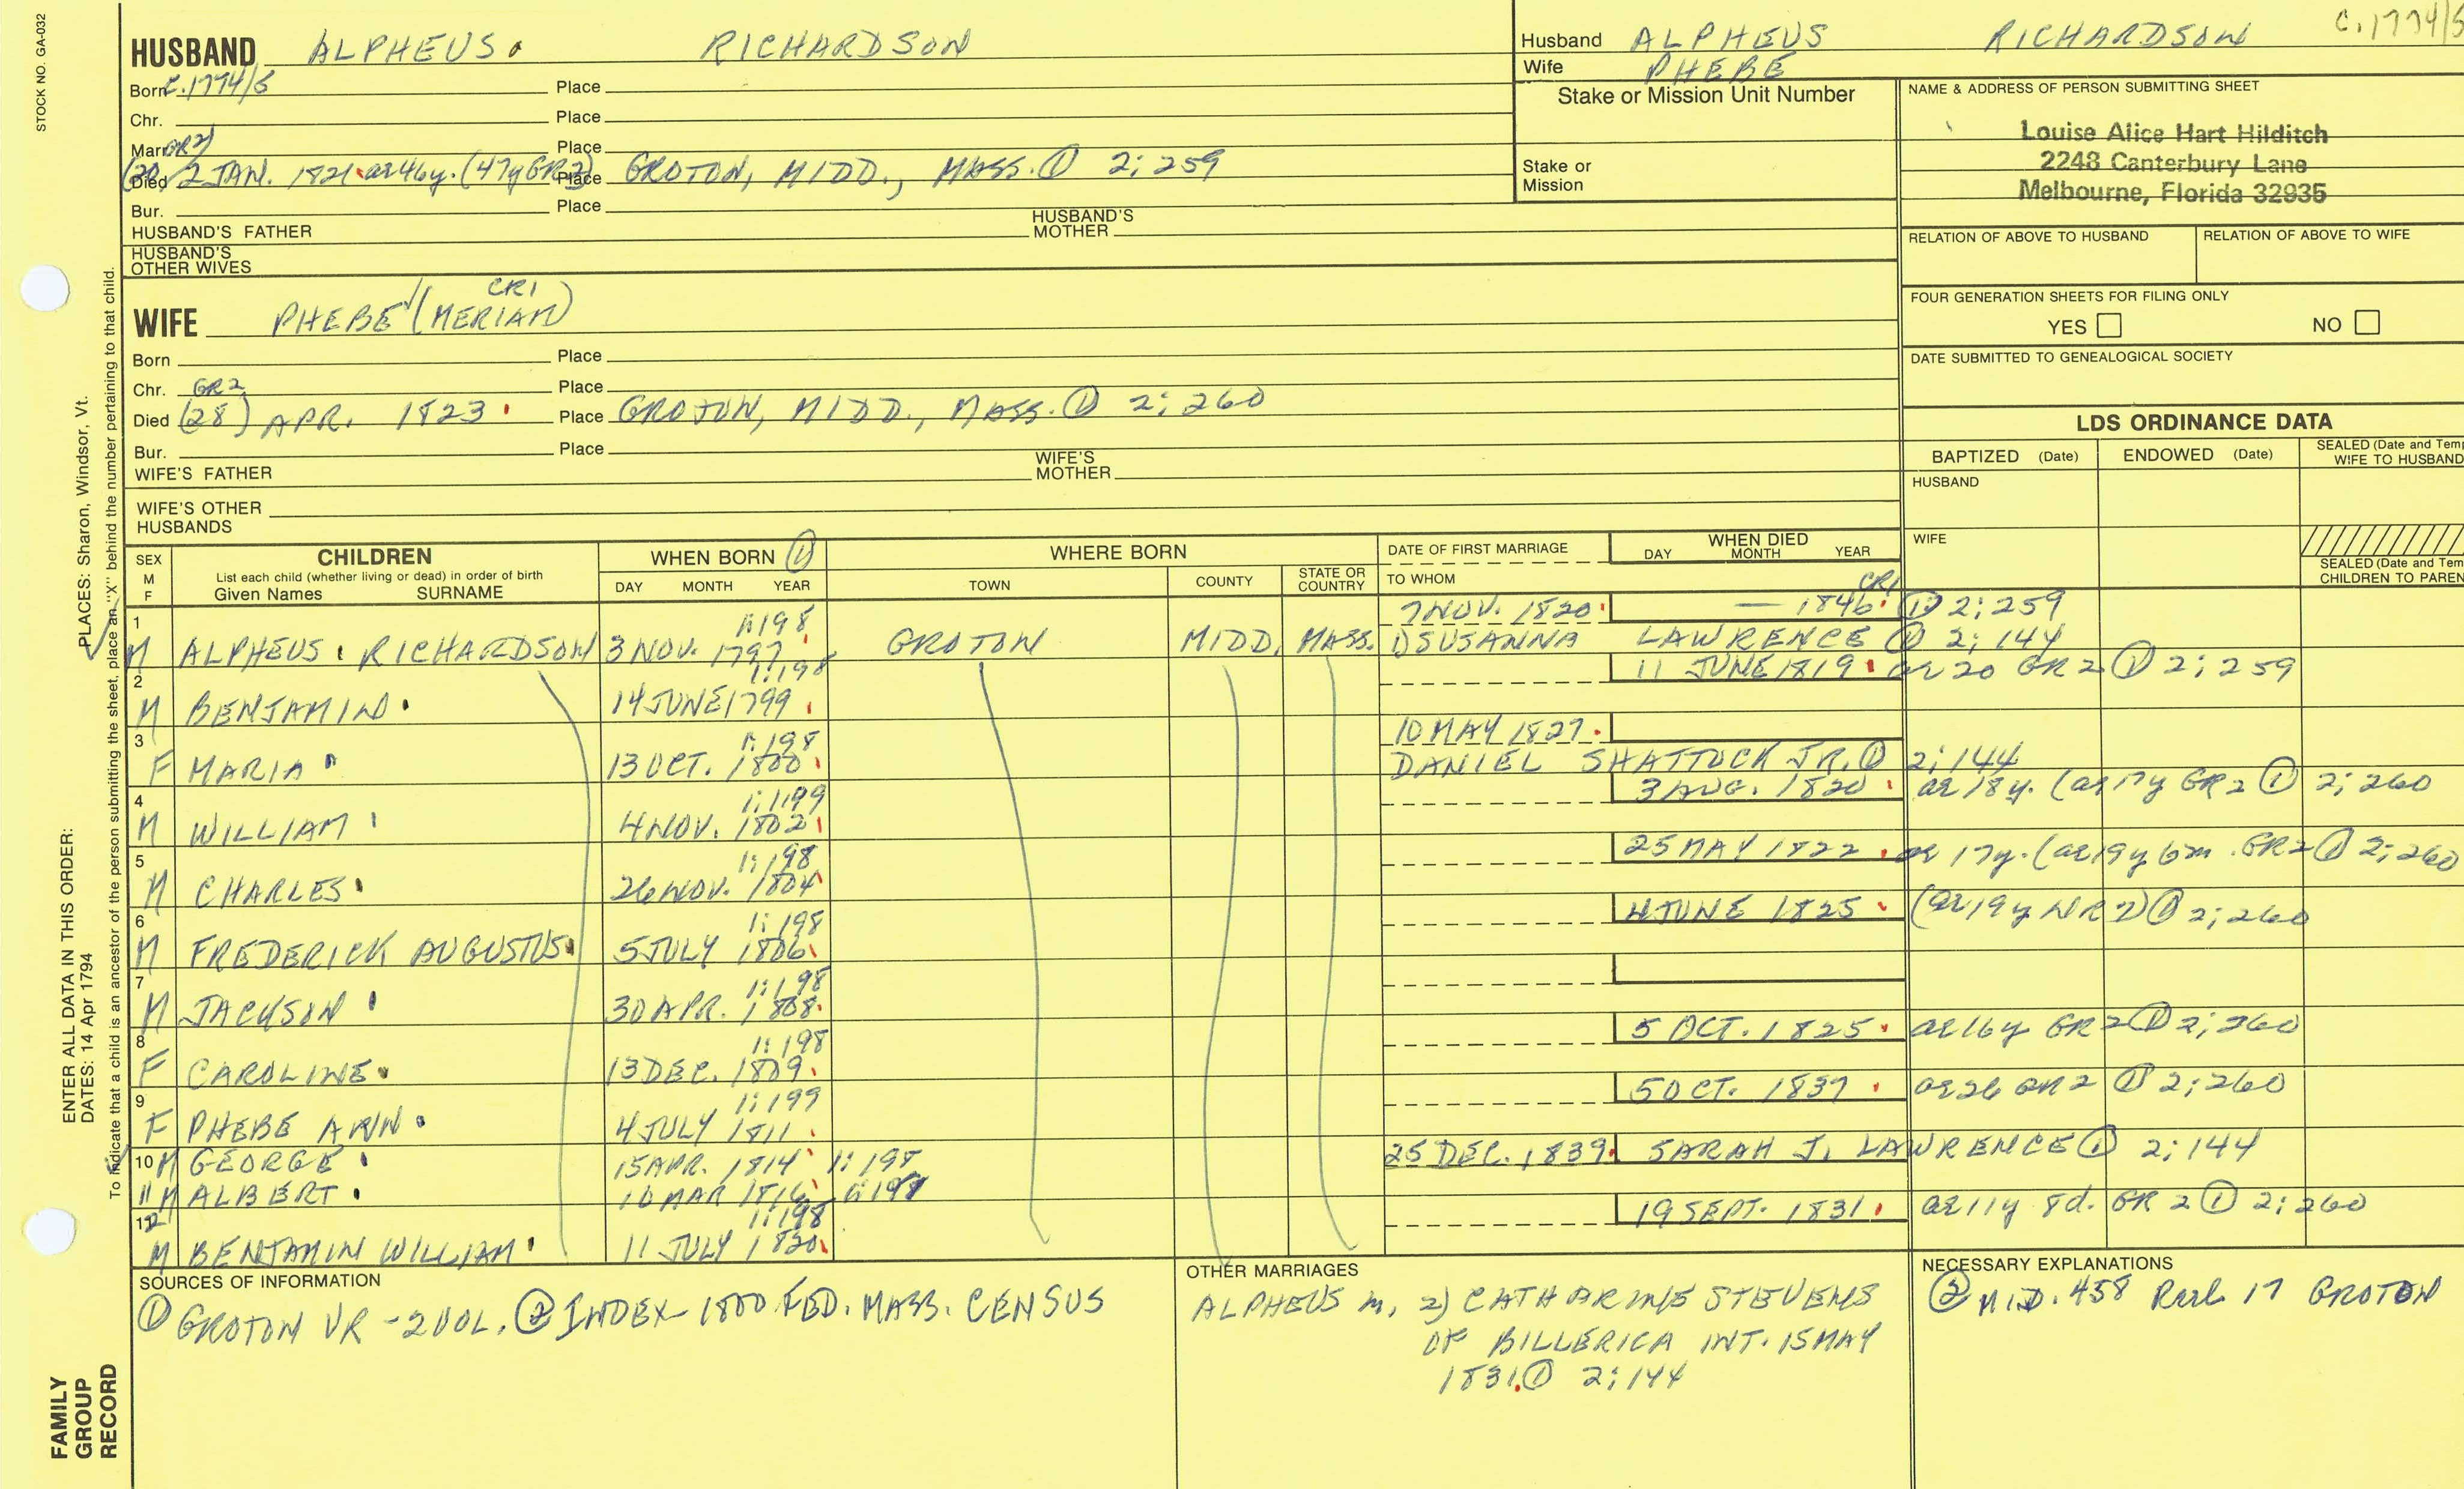 STOCK NO. GA-032
HUSBAND ALPHEUS RICHARDSON
Born C.1774/5 Place
Chr. Place
Marr. Place
GR2)
(20) 2 JAN. 1821 ae 46y. (47y GR2) Died Place GROTON, MIDD., MASS. ① 2:259
Bur. Place
HUSBAND'S FATHER HUSBAND'S MOTHER
HUSBAND'S OTHER WIVES
Husband ALPHEUS RICHARDSON C.1774/5
Wife PHEBE
Stake or Mission Unit Number
Stake or Mission
NAME & ADDRESS OF PERSON SUBMITTING SHEET
Louise Alice Hart Hilditch
2248 Canterbury Lane
Melbourne, Florida 32935
RELATION OF ABOVE TO HUSBAND RELATION OF ABOVE TO WIFE
FOUR GENERATION SHEETS FOR FILING ONLY
YES NO
DATE SUBMITTED TO GENEALOGICAL SOCIETY
CR1
WIFE PHEBE (MERIAM)
Born Place
Chr. Place
GR2
Died (28) APR. 1823 Place GROTON, MIDD., MASS. ① 2:260
Bur. Place
WIFE'S FATHER WIFE'S MOTHER
WIFE'S OTHER HUSBANDS
LDS ORDINANCE DATA
BAPTIZED (Date) ENDOWED (Date) SEALED (Date and Tem WIFE TO HUSBAND
HUSBAND
WIFE
SEALED (Date and Tem CHILDREN TO PAREN
SEX M F
CHILDREN
List each child (whether living or dead) in order of birth
Given Names SURNAME
WHEN BORN ①
DAY MONTH YEAR
WHERE BORN
TOWN COUNTY STATE OR COUNTRY
DATE OF FIRST MARRIAGE
TO WHOM
WHEN DIED
DAY MONTH YEAR
1:198 7 NOV. 1820 — 1846 CR1 ① 2:259
1 M ALPHEUS RICHARDSON 3 NOV. 1797 GROTON MIDD. MASS. 1) SUSANNA LAWRENCE ① 2:144
1:198 11 JUNE 1819 ae 20 GR2 ① 2:259
2 M BENJAMIN 14 JUNE 1799
1:198 10 MAY 1827
3 F MARIA 13 OCT. 1800 DANIEL SHATTUCK JR. ① 2:144
1:199 3 AUG. 1820 ae 18y. (ae 17y GR2 ① 2:260
4 M WILLIAM 4 NOV. 1802
1:198 25 MAY 1822 ae 17y. (ae 19y 6m. GR2 ① 2:260
5 M CHARLES 26 NOV. 1804
1:198 4 JUNE 1825 (ae 19y NR2) ① 2:260
6 M FREDERICK AUGUSTUS 5 JULY 1806
1:198
7 M JACKSON 30 APR. 1808
1:198 5 OCT. 1825 ae 16y GR2 ① 2:260
8 F CAROLINE 13 DEC. 1809
1:199 5 OCT. 1837 ae 26 GR2 ① 2:260
9 F PHEBE ANN 4 JULY 1811
10 M GEORGE 15 APR. 1814 1:198 25 DEC. 1839 SARAH J. LAWRENCE ① 2:144
11 M ALBERT 10 MAR 1816 1:198
1:198 19 SEPT. 1831 ae 11y 8d. GR2 ① 2:260
12 M BENJAMIN WILLIAM 11 JULY 1820
SOURCES OF INFORMATION
① GROTON VR - 2 VOL. ② INDEX - 1800 FED. MASS. CENSUS
OTHER MARRIAGES
ALPHEUS m. 2) CATHARINE STEVENS
OF BILLERICA INT. 15 MAY
1831 ① 2:144
NECESSARY EXPLANATIONS
② MID. 458 Reel 17 GROTON
To indicate that a child is an ancestor of the person submitting the sheet, place an "X" behind the number pertaining to that child.
ENTER ALL DATA IN THIS ORDER:
DATES: 14 Apr 1794 PLACES: Sharon, Windsor, Vt.
FAMILY
GROUP
RECORD